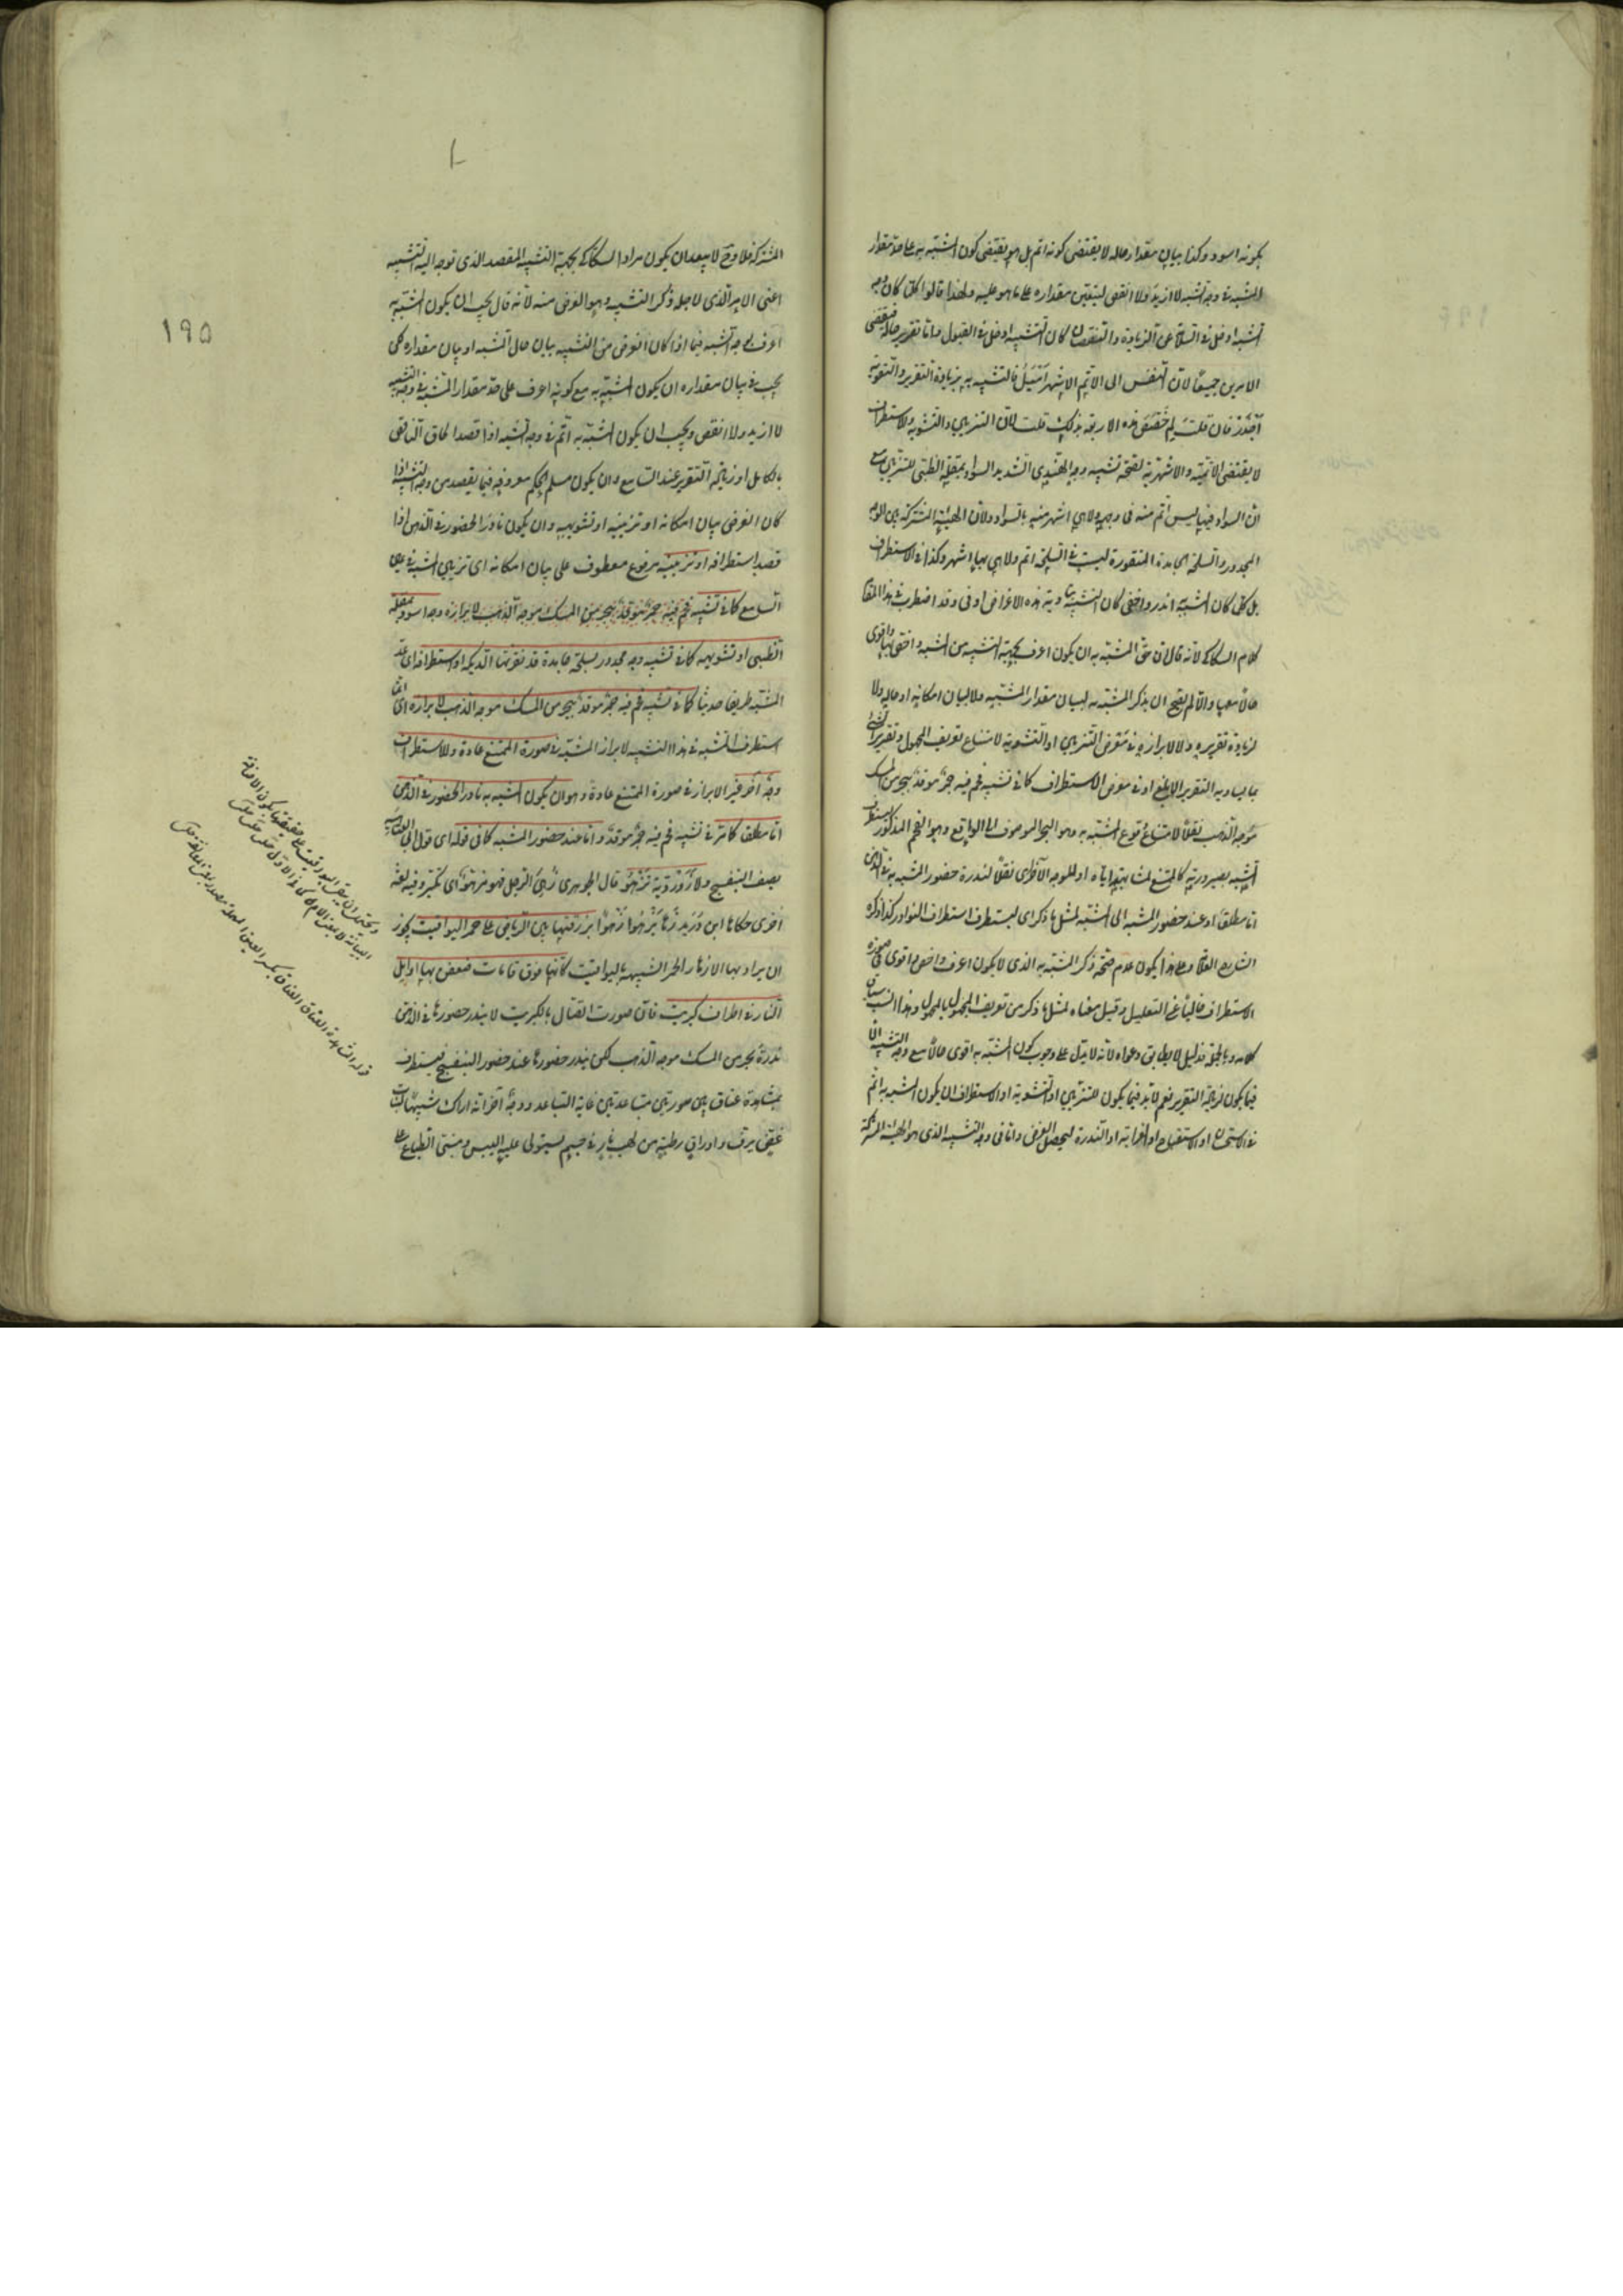 بكونه اسود وكذا بيان مقدار حاله لا يقتضى كونه اتم بل هو يقتضى كون المشبه به على حد مقدار
المشبه فى وجه الشبه لا ازيد ولا انقص ليتعين مقداره على ما هو عليه ولهذا قالوا كلما كان وجه
الشبه ادخل فى السلامة عن الزيادة والنقصان كان التشبيه ادخل فى القبول واما تقرير حاله فيقتضى
الامرين جميعا لان النفس الى الاتم الاشهر اميل فالتشبيه به بزيادة التقرير والتقوية
اجدر فان قلت لم خصص هذه الاربعة بذلك قلت لان التزيين والتشويه والاستطراف
لا يقتضى الاتمية والاشهرية لصحة تشبيه وجه الهندى الشديد السواد بمقلة الظبى للتزيين مع
ان السواد فيها ليس اتم منه فى وجهه ولا هى اشهر منه بالسواد ولان الهيئة المشتركة بين الوجه
المجدور والسلحة الجامدة المنقورة ليست فى السلحة اتم ولا هى بها اشهر وكذا فى الاستطراف
بل كلما كان المشبه به اندر واخفى كان التشبيه بتأدية هذه الاغراض اوفى وقد اضطرب فى هذا المقام
كلام السكاكى لانه قال ان حق المشبه به ان يكون اعرف بجهة التشبيه من المشبه واخص بها واقوى
حالا معها والا لم يصح ان يذكر المشبه به لبيان مقدار المشبه ولا لبيان امكانه او حاله ولا
لزيادة تقريره ولا لابرازه فى معرض التزيين او التشويه لامتناع تعريف المجهول وتقرير الشئ
بما يساويه التقرير الابلغ او فى معرض الاستطراف كما فى تشبيه فحم فيه جمر موقد ببحر من المسك
موجه الذهب نقلا لامتناع وقوع المشبه به وهو البحر الموصوف الى الواقع وهو الفحم المذكور ليستطرف
المشبه بصيرورته كالممتنع لمشابهته اياه او للوجه الآخر اى نقلا لندرة حضور المشبه به فى الذهن
اما مطلقا او عند حضور المشبه الى المشبه لمثل ما ذكر اى ليستطرف استطراف النوادر كذا ذكره
الشارح العلامة وعلى هذا يكون عدم صحة ذكر المشبه به الذى لا يكون اعرف واخص واقوى فى صورة
الاستطراف خاليا عن التعليل وقيل معناه لمثل ما ذكر من تعريف المجهول بالمجهول وهذا انسب بسياق
كلامه وبالجملة فدليله لا يطابق دعواه لانه لا يدل على وجوب كون المشبه به اقوى حالا مع وجه التشبيه الا
فيما يكون لزيادة التقرير نعم لابد فيما يكون للتزيين او التشويه او الاستطراف ان يكون المشبه به اتم
فى الاستحسان او الاستقباح او الغرابة او الندرة ليحصل الغرض واما فى وجه التشبيه الذى هو الهيئة المشتركة
١٩٥
المشتركة فلا وح لا يبعد ان يكون مراد السكاكى بجهة التشبيه المقصد الذى توجه اليه التشبيه
اعنى الامر الذى لاجله ذكر التشبيه وهو الغرض منه لانه قال يجب ان يكون المشبه به
اعرف بوجه الشبه فيما اذا كان الغرض من التشبيه بيان حال المشبه او بيان مقداره لكن
يجب فى بيان مقداره ان يكون المشبه به مع كونه اعرف على حد مقدار المشبه فى وجه التشبيه
لا ازيد ولا انقص ويجب ان يكون المشبه به اتم فى وجه الشبه اذا قصد الحاق الناقص
بالكامل او زيادة التقرير عند السامع وان يكون مسلم الحكم معروفه فيما يقصد من وجه الشبه اذا
كان الغرض بيان امكانه او تزيينه او تشويهه وان يكون نادر الحضور فى الذهن اذا
قصد استطرافه او تزيينه مرفوع معطوف على بيان امكانه اى تزيين المشبه فى عين
السامع كما فى تشبيه وجه اسود بمقلة
الظبى او تشويهه كما فى تشبيه وجه مجدور بسلحة جامدة قد نقرتها الديكة او استطرافه اى عد
المشبه طريفا حديثا كما فى تشبيه فحم فيه جمر موقد ببحر من المسك موجه الذهب لابرازه اى انما
استطرف المشبه فى هذا التشبيه لابراز المشبه فى صورة الممتنع عادة وللاستطراف
وجه آخر غير الابراز فى صورة الممتنع عادة وهو ان يكون المشبه به نادر الحضور فى الذهن
اما مطلقا كما مر فى تشبيه فحم فيه جمر موقد واما عند حضور المشبه كما فى قوله اى قول ابى العتاهية
يصف البنفسج ولازوردية تزهو قال الجوهرى زهى الرجل فهو مزهو اى تكبر وفيه لغة
اخرى حكاها ابن دريد زها يزهو زهوا بزرقتها بين الرياض على حمر اليواقيت يجوز
ان يراد بها الازهار الحمر الشبيهة باليواقيت كانها فوق قامات ضعفن بها اوايل
النار فى اطراف كبريت فان صورة اتصال بالكبريت لا يندر حضورها فى الذهن
ندرة بحر من المسك موجه الذهب لكن يندر حضورها عند حضور البنفسج فيستطرف
بمشاهدة عناق بين صورتين متباعدتين غاية التباعد ووجه آخر انه اراك شبيها لنبات
غض يرف واوراق رطبة من لهب نار فى جسم يستولى عليه اليبس ومبنى الطباع على